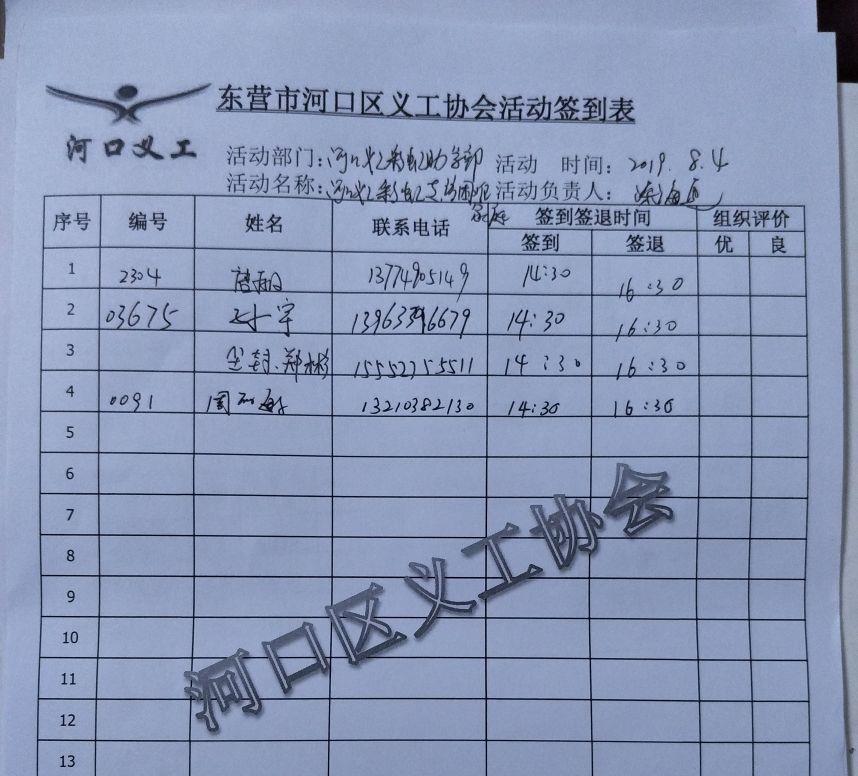 东营市河口区义工协会活动签到表
河口义工
活动部门：河口彩虹助学部 活动 时间：2019.8.4
活动名称： 活动负责人：
家庭
序号 编号 姓名 联系电话 签到签退时间 组织评价
签到 签退 优 良
1 2304 13774905149 14:30 16:30
2 03675 孙宇 13963396679 14:30 16:30
3 郑 15552755511 14:30 16:30
4 0091 周 13210382130 14:30 16:30
5
6
7
8
9
10
11
12
13
河口区义工协会